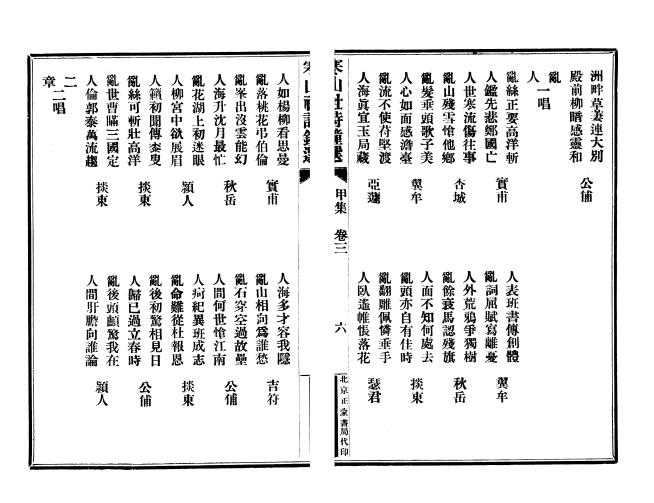 洲畔草萋連大別
殿前柳暗感靈和　公俌
亂
人　一唱
亂絲正要高洋斬
人鑑先悲鄭國亡　實甫
人表班書傳創體
亂詞屈賦寫離憂　冀牟
人世寒流傷往事
亂山殘雪愴他鄉　杏城
人外荒鴉爭獨樹
亂餘衰馬認殘旗　秋岳
亂髮垂頭歌子美
人心如面感澹臺　冀牟
人面不知何處去
亂頭亦自有佳時　掞東
亂流不使苻堅渡
人海眞宜玉局藏　亞蘧
亂翻雕佩憐垂手
人臥遙帷悵落花　瑟君
寒山社詩鐘選　甲集　卷三　六　北京正蒙書局代印
人如楊柳看思曼
亂落桃花弔伯倫　實甫
人海多才容我隱
亂山相向爲誰愁　吉符
亂峯出沒雲能幻
人海升沈月最忙　秋岳
亂石穿空過故壘
人間何世愴江南　公俌
亂花湖上初迷眼
人柳宮中欲展眉　潁人
人疴紀異班成志
亂命難從杜報恩　掞東
人籟初聞傳叟
亂絲可斬壯高洋　掞東
亂後初驚相見日
人歸已過立春時　公俌
亂世曹瞞三國定
人倫郭泰萬流趨　掞東
亂後頭顱驚我在
人間肝膽向誰論　潁人
二
章　二唱